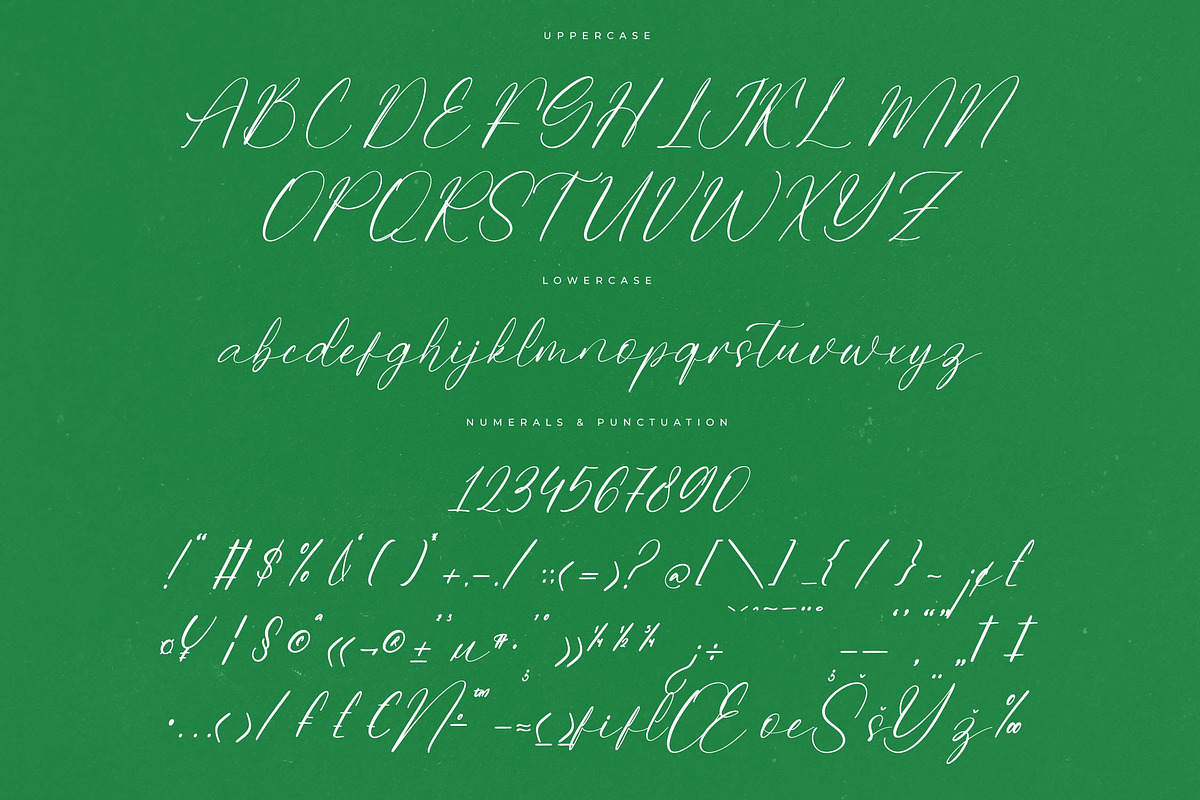 UPPERCASE
ABCDEFGHIJKLMN
OPQRSTUVWXYZ
LOWERCASE
abcdefghijklmnopqrstuvwxyz
NUMERALS & PUNCTUATION
1234567890
!"#$%&'()*+,-./:;<=>?@[\]_{/}~¡¢£
¤¥¦§©ª«¬®±²³µ¶·¹º»¼½¾¿÷——‚„†‡
•…‹›/₣₤€№−≈≤≥fiflŒœŠšŸž‰